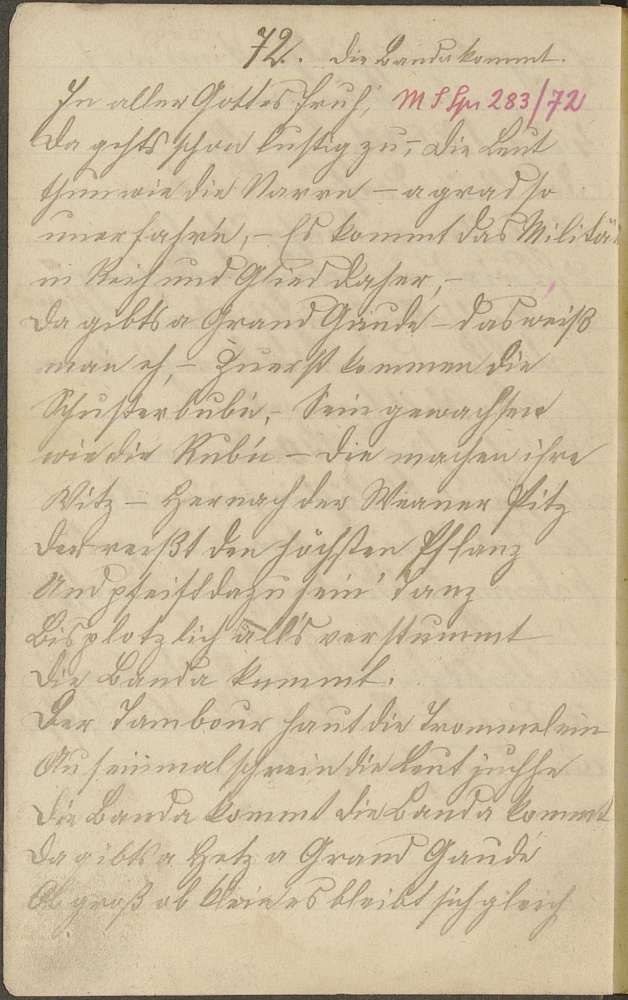 72. Die Banda kommt.
In aller Gottes Fruh, M S Hs 283/72
Da gehts schon lustig zu, – Die Leut
thun wie die Narren – a grad so
unerfahrn, – Es kommt das Militär
in Reih und Glied daher, –
Da gibts a Grand Gaude – das weiß
man eh, – Zuerst kommen die
Schusterbub'n, – Sein gewachsen
wie die Rub'n – Die machen ihre
Witz – Hernach der Weaner Pitz
Der reißt den höchsten Pflanz
Und pfeift dazu sein' Tanz
Bis plotzlich alls verstummt
Die Banda kommt.
Der Tambour haut die Trommel ein
Auf einmal schrein die Leut juchhe
Die Banda kommt die Banda kommt
Da gibts a Hetz a Grand Gaude
Ob groß ob klein es bleibt sich gleich